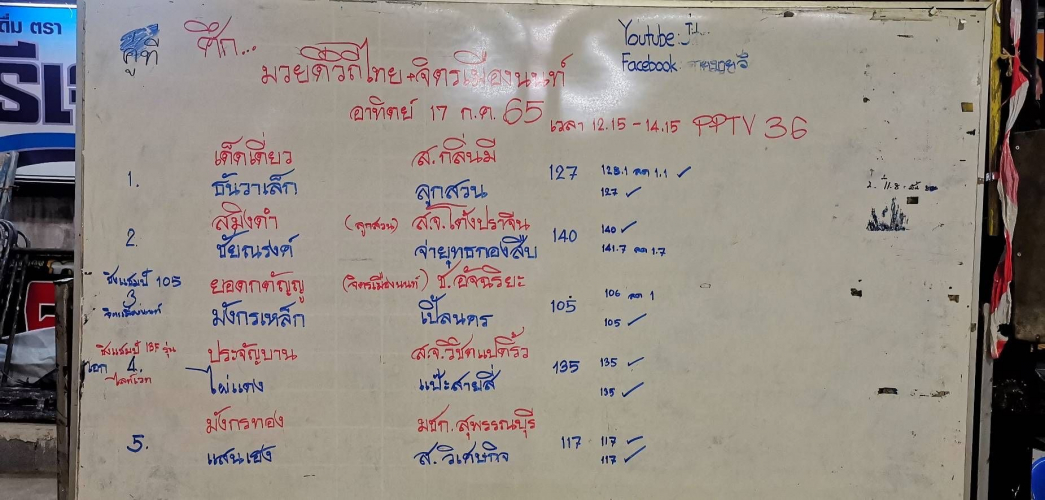 ดื่ม ตรา
คู่ที่ ศึก...
Youtube:
Facebook
มวยดีวิถีไทย+จิตรเมืองนนท์
อาทิตย์ 17 ก.ค. 65 เวลา 12.15 - 14.15 PPTV 36
1. เด็ดเดี่ยว ส.กลิ่นมี 127 128.1 ลด 1.1 ✓
ธันวาเล็ก ลูกสวน 127 ✓
2. สมิงดำ (ลูกสวน) ส.จ.โต้งปราจีน 140 140 ✓
ชัยณรงค์ จ่ายุทธกองสืบ 141.7 ลด 1.7
ชิงแชมป์ 105 ยอดกตัญญู (จิตรเมืองนนท์) ช.อัจฉริยะ 105 106 ลด 1
3
จิตรเมืองนนท์ มังกรเหล็ก เปี๊ลนคร 105 ✓
ชิงแชมป์ 135 รุ่น ประจัญบาน ส.จ.วิชิตแปดริ้ว 135 135 ✓
4.
ไลท์เวท ไผ่แดง แป๊ะสายสี่ 135 ✓
5. มังกรทอง มชก.สุพรรณบุรี 117 117 ✓
แสนเฮง ส.วิเศษกิจ 117 ✓